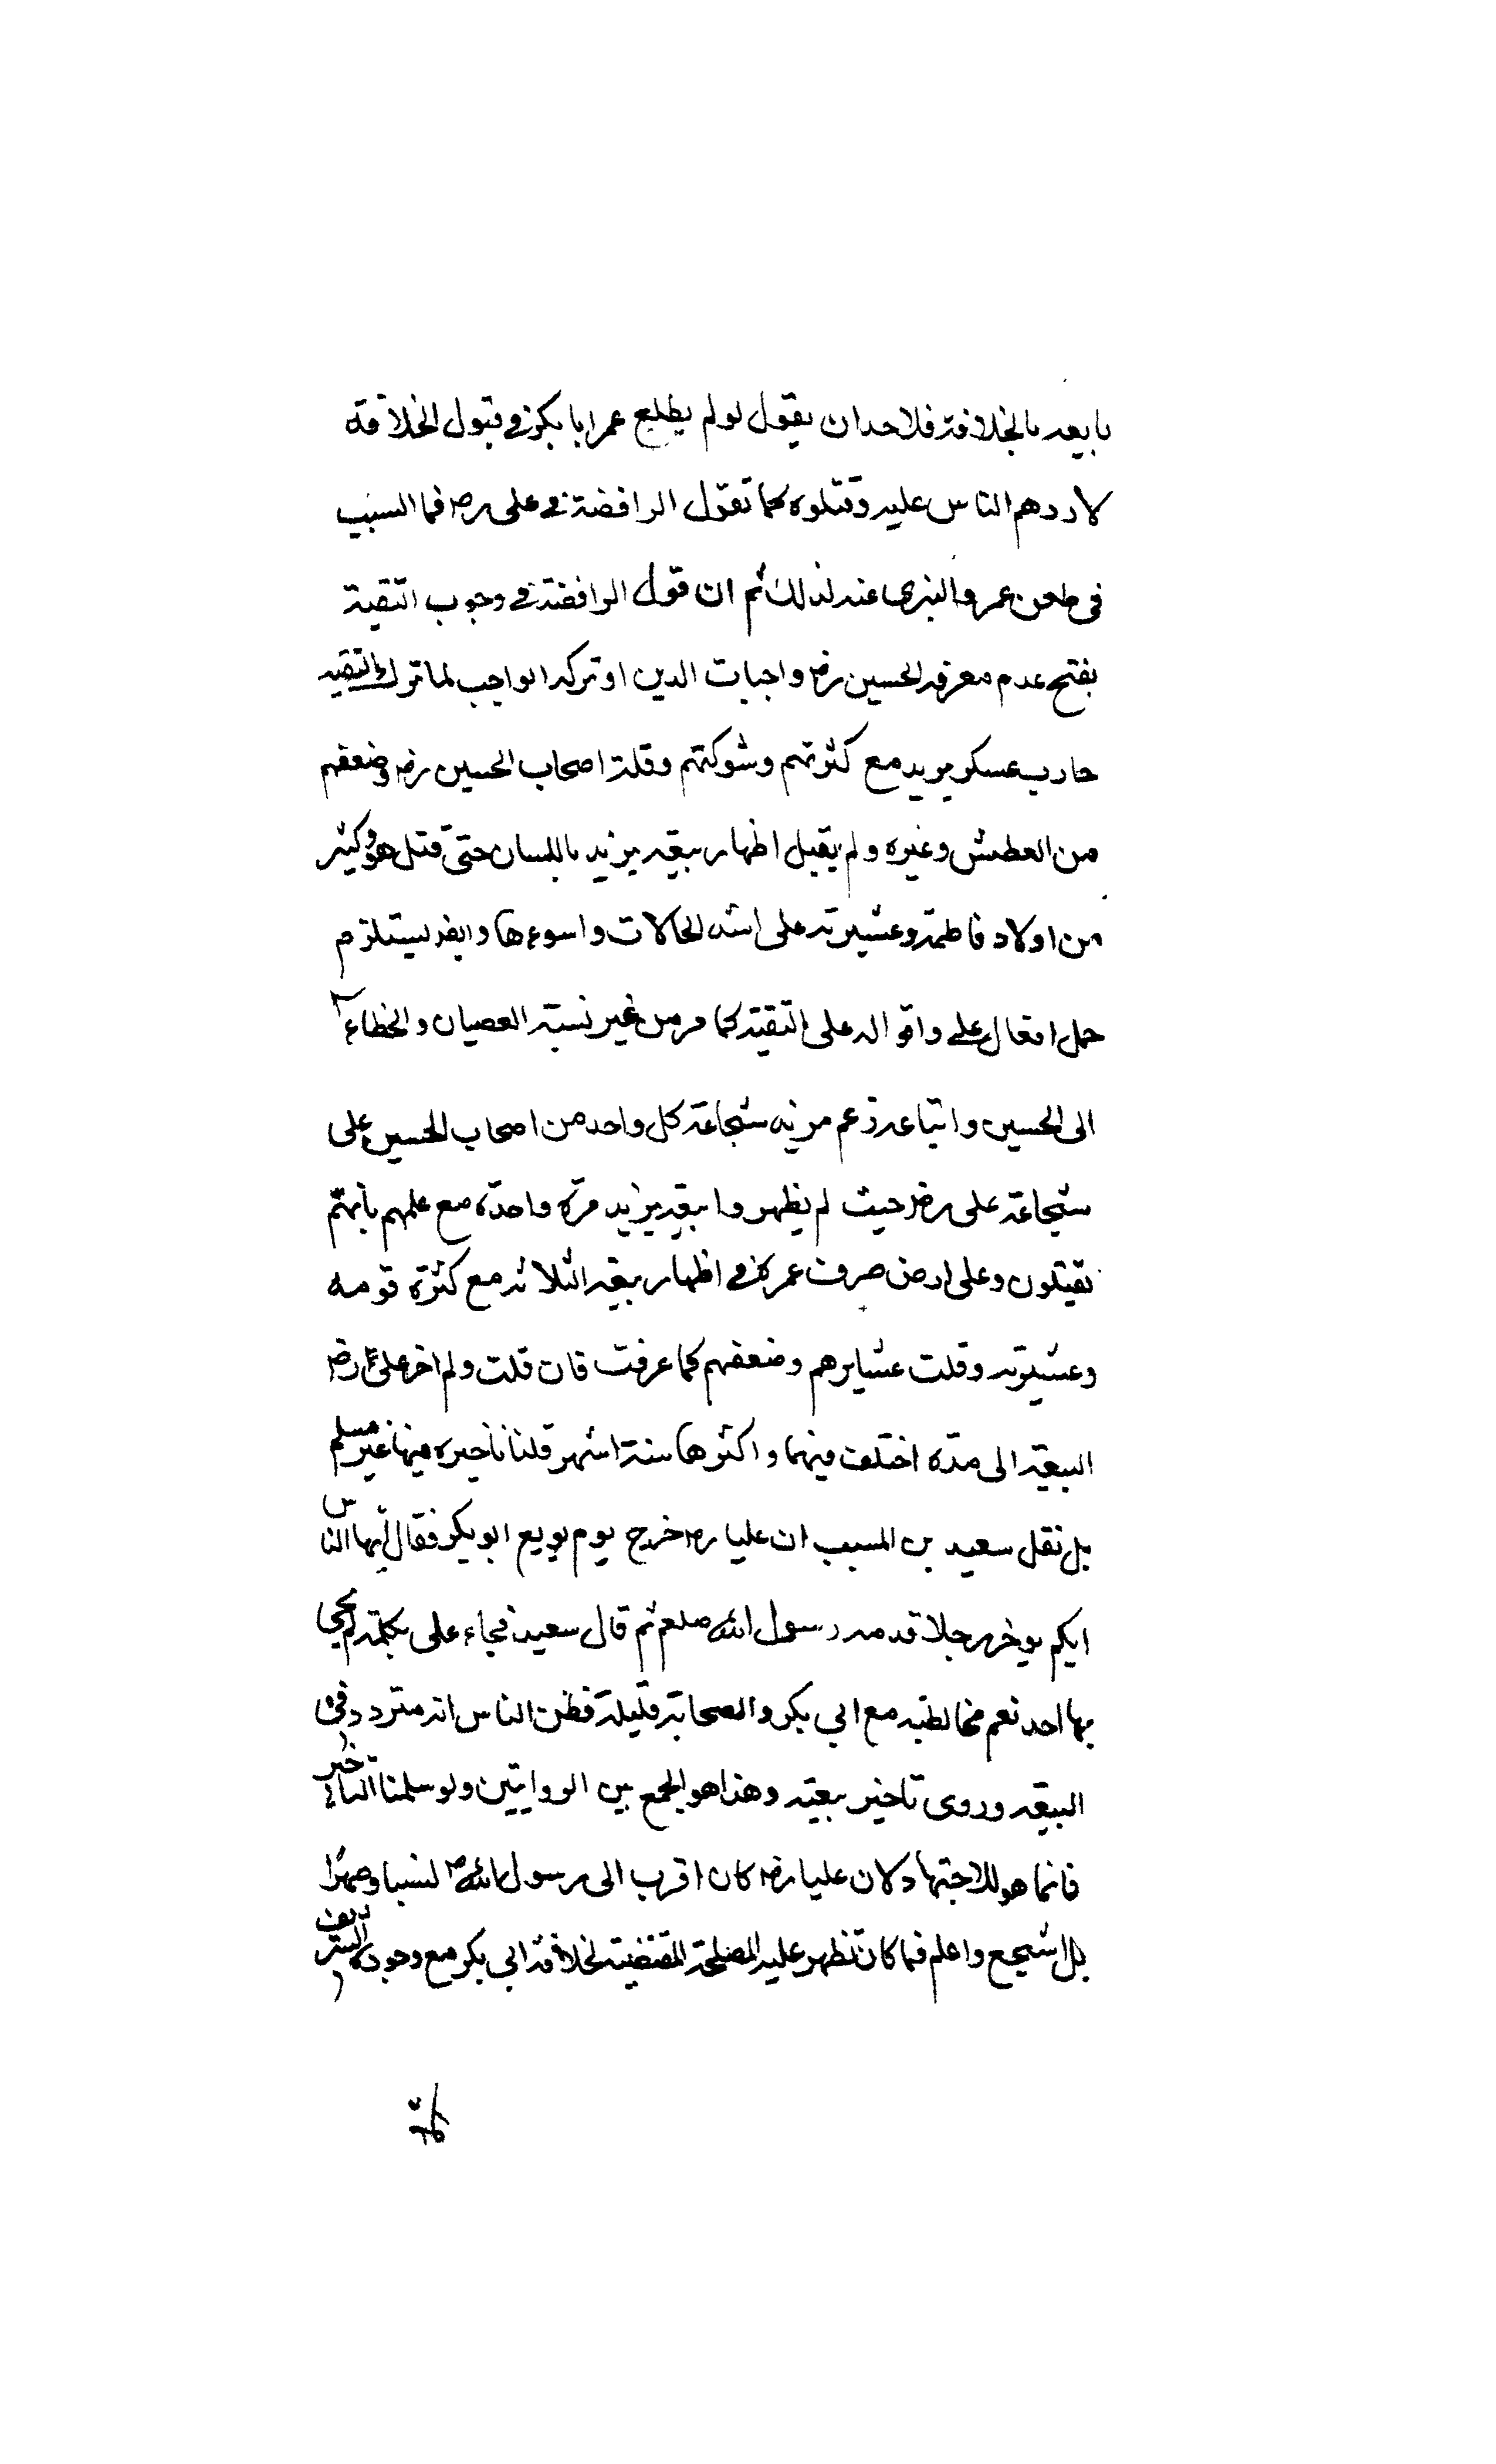 بايعه بالخلافة فلاحد ان يقول لو لم يطلع عمر ابا بكر في قبول الخلافة
لازدهم الناس عليه وقتلوه كما تقول الرافضة في على رض فما السبب
في طعن عمر والتبرى عنه لذلك ثم ان قول الرافضة في وجوب التقية
يفتح عدم معرفة الحسين رض واجبات الدين او تركه الواجب لما ترك التقيه
حارب عسكر يزيد مع كثرتهم وشوكتهم وقلة اصحاب الحسين رض وضعفهم
من العطش وغيره ولم يقبل اظهار بيعة يزيد باللسان حتى قتل هو وكثير
من اولاد فاطمة وعشيرته على اشد الحالات واسوءها وايضا يستلزم
حمل افعال على واقواله على التقية كما مر من غير نسبة العصيان والخطاء
الى الحسين واتباعه زعم مزية شجاعة كل واحد من اصحاب الحسين على
شجاعة على رض حيث لم يظهروا بيعة يزيد مرة واحدة مع علمهم بانهم
يقتلون وعلى رض صرف عمره في اظهار بيعة الثلاثه مع كثرة قومه
وعشيرته وقلت عشايرهم وضعفهم كما عرفت فان قلت ولم اخر على رض
البيعة الى مدة اختلف فيها واكثرها ستة اشهر قلنا تاخيره فيها غير مسلم
بل نقل سعيد بن المسيب ان عليا رض خرج يوم بويع ابو بكر فقال ايها الناس
ايكم يوخر رجلا قدمه رسول الله صلعم ثم قال سعيد فجاء على بكلمة لم يجئ
بها احد نعم مخالطته مع ابي بكر والصحابة قليلة فظن الناس انه متردد في
البيعة وروى تاخير بيعته وهذا هو الجمع بين الروايتين ولو سلمنا التاخير
فانما هو للاجتهاد لان عليا رض كان اقرب الى رسول الله ص نسبا وصهرا
بل اشجع واعلم فما كان تظهر عليه المصلحة المقتضية لخلافة ابي بكر مع وجوده الشريف